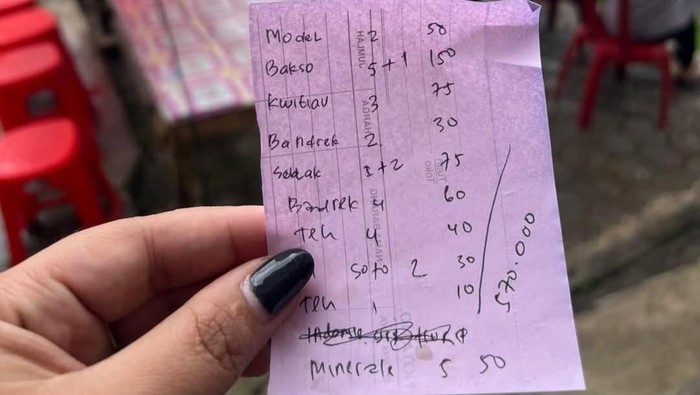 Model 2 50
Bakso 5+1 150
Kwitiau 3 75
Bandrek 2 30
Seblak 1+2 75
Bandrek 4 60
Teh 4 40
Soto 2 30
Teh 1 10
Minerale 5 50
570.000